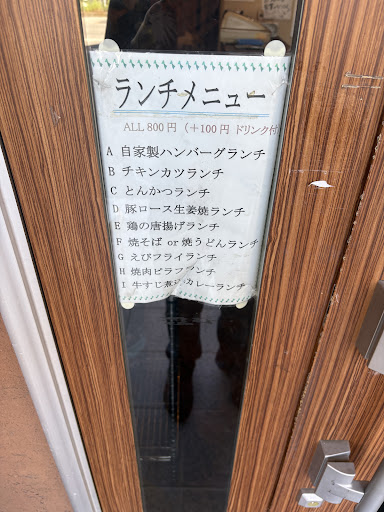 ランチメニュー
ALL 800円 (+100円 ドリンク付
A 自家製ハンバーグランチ
B チキンカツランチ
C とんかつランチ
D 豚ロース生姜焼ランチ
E 鶏の唐揚げランチ
F 焼そば or 焼うどんランチ
G えびフライランチ
H 焼肉ピラフランチ
I 牛すじ煮込カレーランチ